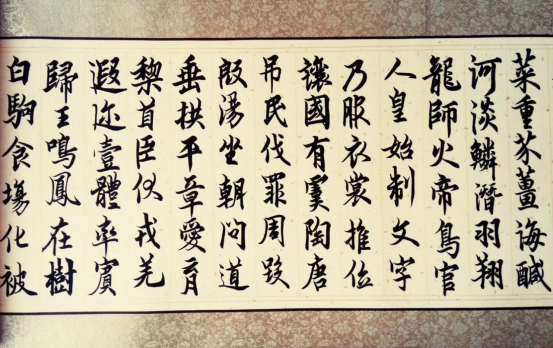 菜重芥薑海醎
河淡鱗潛羽翔
龍師火帝鳥官
人皇始制文字
乃服衣裳推位
讓國有虞陶唐
吊民伐罪周發
殷湯坐朝問道
垂拱平章愛育
黎首臣伏戎羌
遐迩壹體率賓
歸王鳴鳳在樹
白駒食場化被